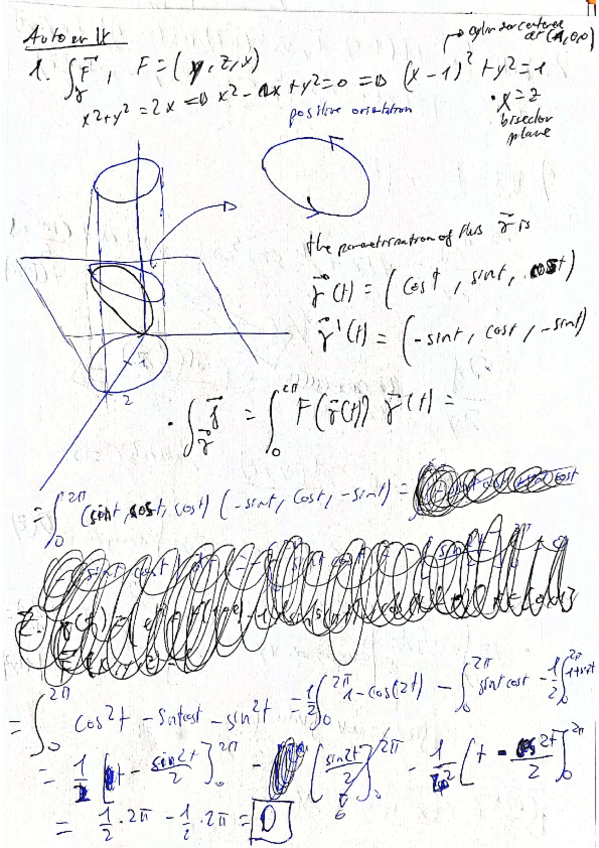 Autoer IX
cylinder centered
at (1,0,0)
1. ∫_γ F, F = (y, z, x)
x²+y² = 2x ⇒ x² - 2x + y² = 0 ⇒ (x-1)² + y² = 1
• x = z
bisector
plane
positive orientation
the parametrization of this γ is
γ(t) = (cos t, sin t, cos t)
γ'(t) = (-sin t, cos t, -sin t)
1
2
• ∫_γ f = ∫_0^{2π} F(γ(t)) γ'(t) =
= ∫_0^{2π} (sin t, cos t, cos t) (-sin t, cos t, -sin t) =
= ∫_0^{2π} cos²t - sint cost - sin²t = 1/2 ∫_0^{2π} 1 - cos(2t) - ∫_0^{2π} sint cost - 1/2 ∫_0^{2π}
= 1/2 [t - sin2t/2]_0^{2π} - [sin2t/2]_0^{2π} - 1/2 [t - 2t/2]_0^{2π}
= 1/2 · 2π - 1/2 · 2π = 0